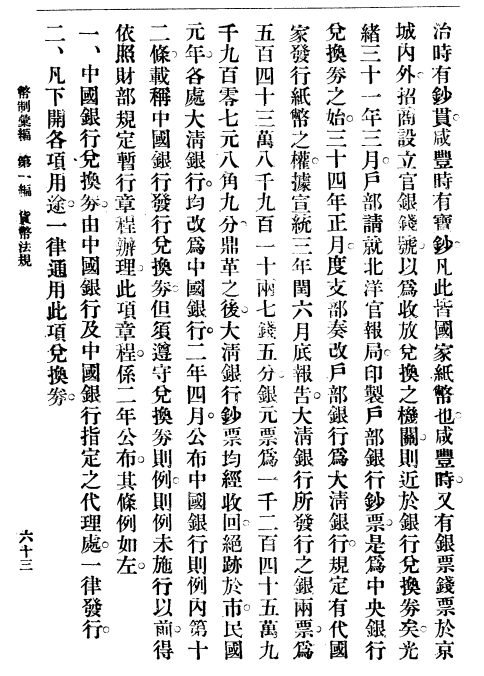 治時有鈔貫。咸豐時有寶鈔。凡此皆國家紙幣也。咸豐時。又有銀票錢票於京
城內外。招商設立官銀錢號。以爲收放兌換之機關。則近於銀行兌換劵矣。光
緖三十一年三月。戶部請就北洋官報局。印製戶部銀行鈔票。是爲中央銀行
兌換劵之始。三十四年正月。度支部奏改戶部銀行爲大淸銀行。規定有代國
家發行紙幣之權。據宣統三年閏六月底報吿。大淸銀行所發行之銀兩票。爲
五百四十三萬八千九百一十兩七錢五分。銀元票爲一千二百四十五萬九
千九百零七元八角九分。鼎革之後。大淸銀行鈔票。均經收回。絕跡於市。民國
元年。各處大淸銀行。均改爲中國銀行。二年四月。公布中國銀行則例內第十
二條。載稱中國銀行發行兌換劵。但須遵守兌換劵則例。則例未施行以前。得
依照財部規定暫行章程辦理。此項章程。係二年公布。其條例如左。
一、中國銀行兌換劵。由中國銀行及中國銀行指定之代理處。一律發行。
二、凡下開各項用途。一律通用此項兌換劵。
幣制彙編 第一編 貨幣法規
六十三